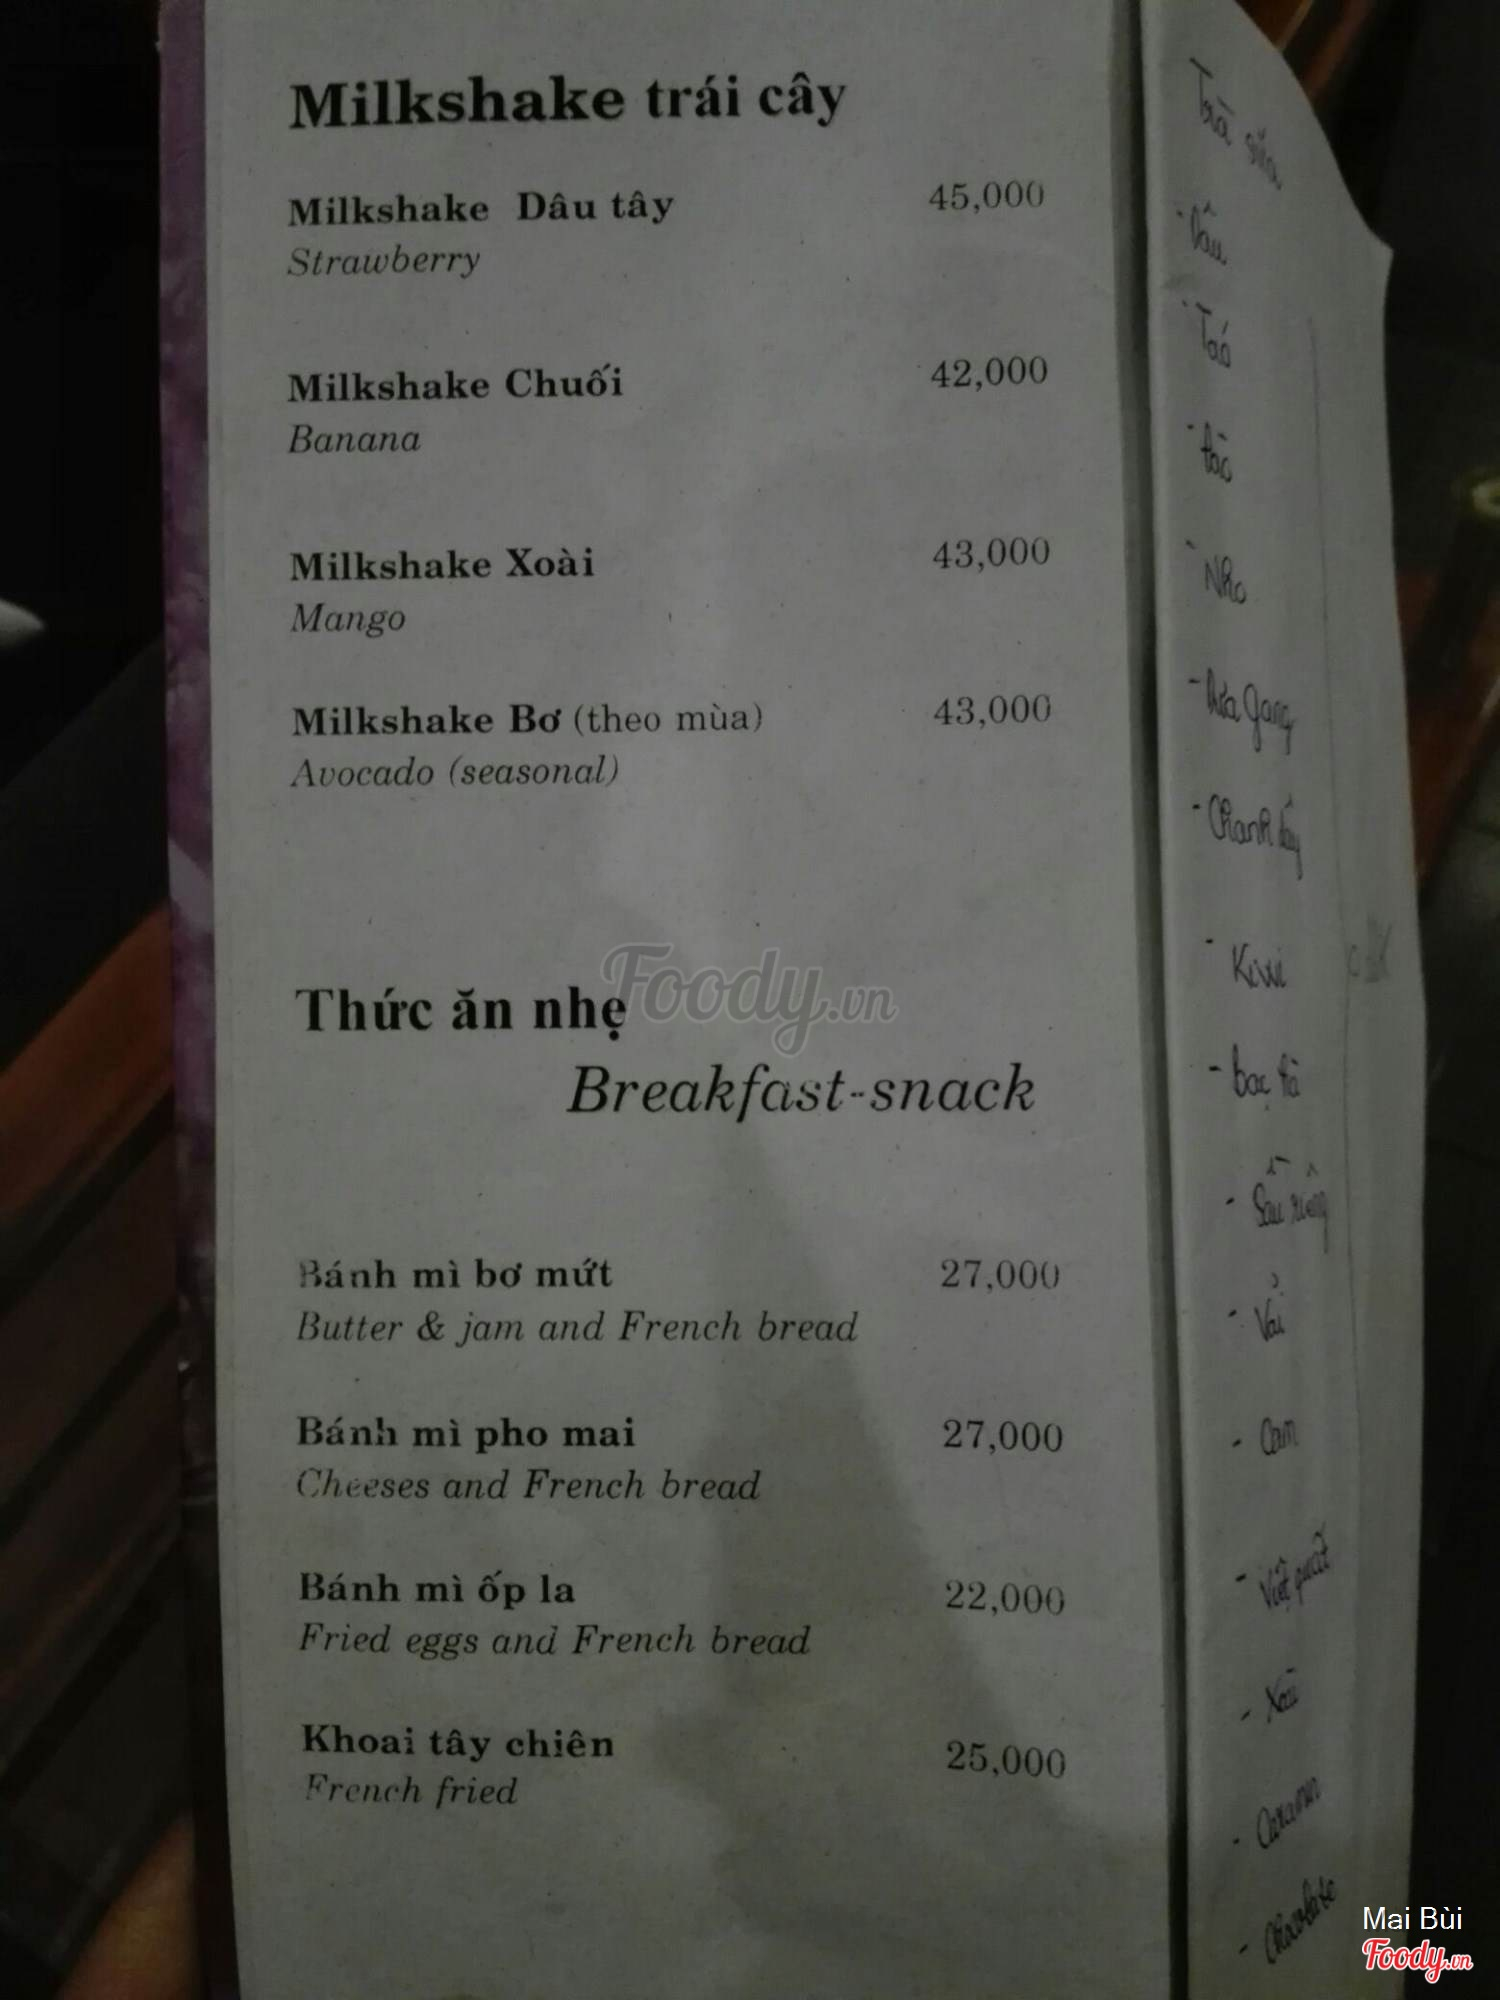 Milkshake trái cây
Milkshake Dâu tây 45,000
Strawberry
Milkshake Chuối 42,000
Banana
Milkshake Xoài 43,000
Mango
Milkshake Bơ (theo mùa) 43,000
Avocado (seasonal)
Foody.vn
Thức ăn nhẹ
Breakfast-snack
Bánh mì bơ mứt 27,000
Butter & jam and French bread
Bánh mì pho mai 27,000
Cheeses and French bread
Bánh mì ốp la 22,000
Fried eggs and French bread
Khoai tây chiên 25,000
French fried
Trà sữa
- Dâu
- Táo
- Nho
- Dưa gang
- Chanh dây
- Kiwi
- bạc hà
- Sầu riêng
- Vải
- Cam
- Việt quất
- Xoài
- Caramen
- Chocolate
Mai Bùi
Foody.vn